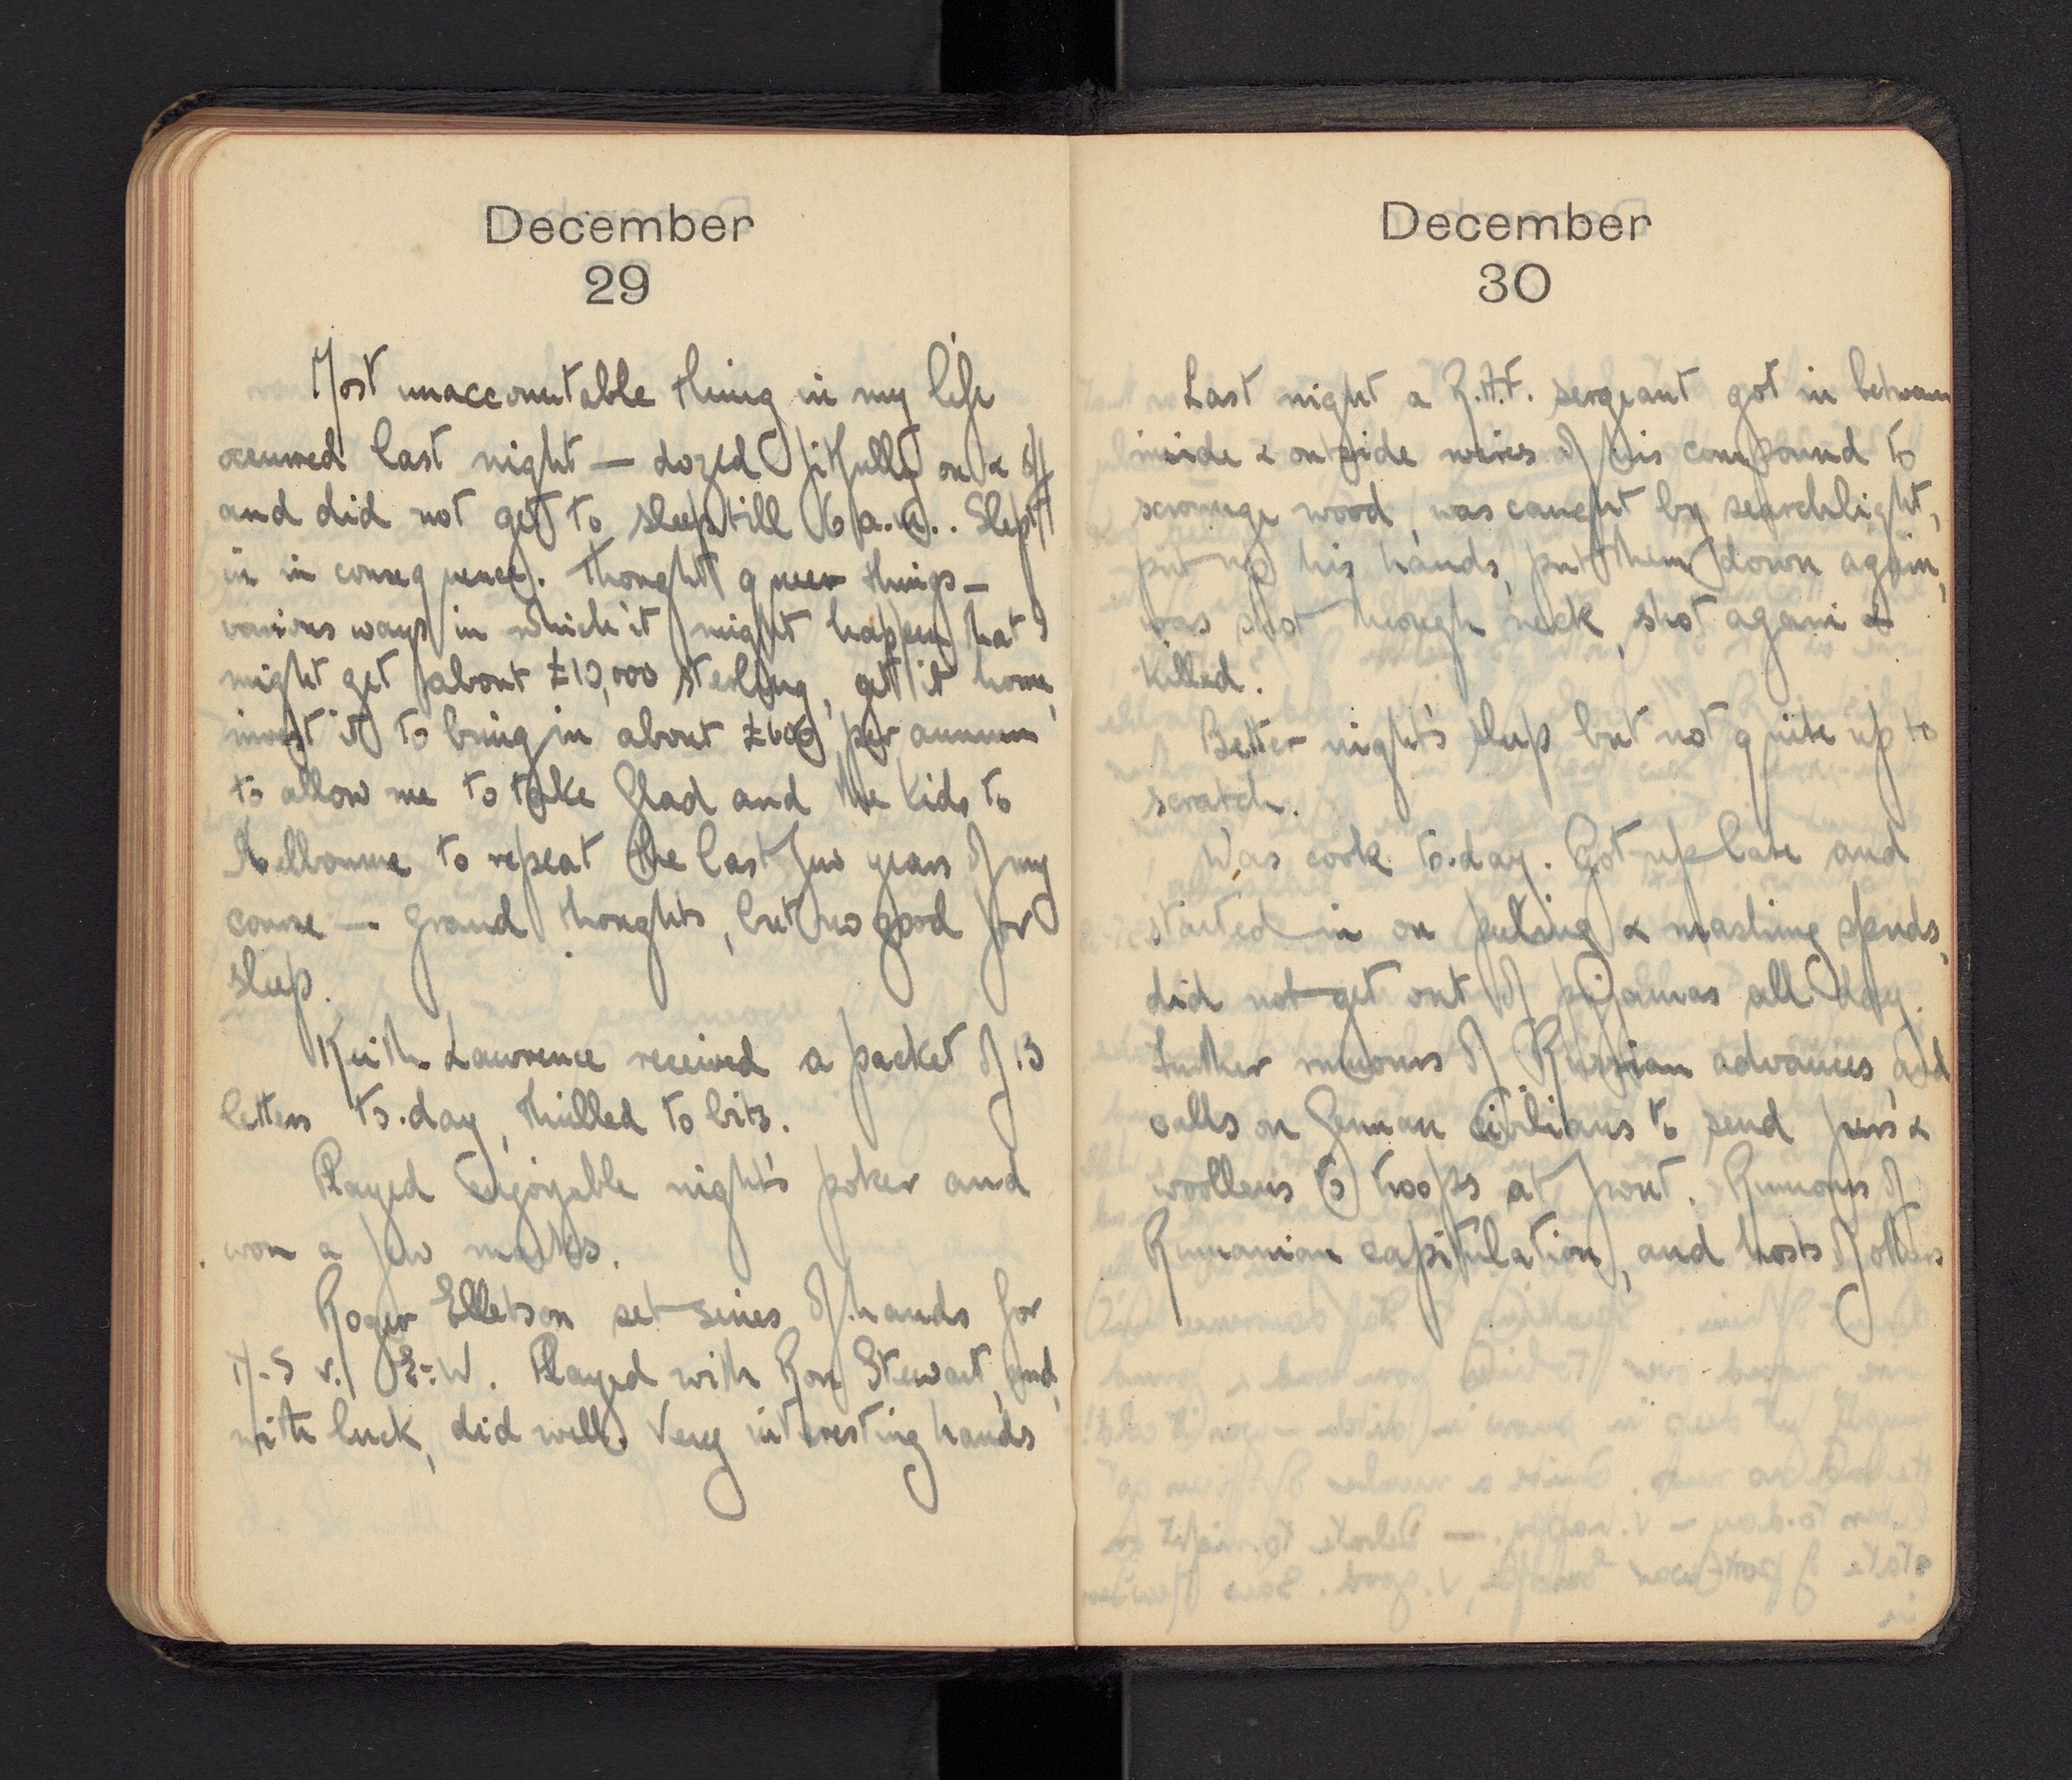 December
29
Most unaccountable thing in my life
occurred last night — dozed fitfully on & off
and did not get to sleep till 6 a.m.. Slept
in in consequence. Thought queer things —
various ways in which it might happen that I
might get about £10,000 sterling, get it home,
invest it to bring in about £600 per annum
to allow me to take Glad and the kids to
Melbourne to repeat the last few years of my
course — grand thoughts, but no good for
sleep.
Keith Lawrence received a packet of 13
letters to.day, thrilled to bits.
Played enjoyable night's poker and
won a few marks.
Roger Elletson set series of hands for
N-S v. E-W. Played with Ron Stewart, and,
with luck, did well. Very interesting hands
December
30
Last night a R.A.F. sergeant got in between
inside & outside wires of his compound to
scrounge wood, was caught by searchlight,
put up his hands, put them down again,
was shot through neck, shot again &
killed.
Better night's sleep but not quite up to
scratch.
Was cook to.day. Got up late and
started in on peeling & mashing spuds,
did not get out of pyjamas all day.
Further rumours of Russian advances, and
calls on German civilians to send furs &
woollens to troops at front. Rumours of
Rumanian capitulation, and hosts of others